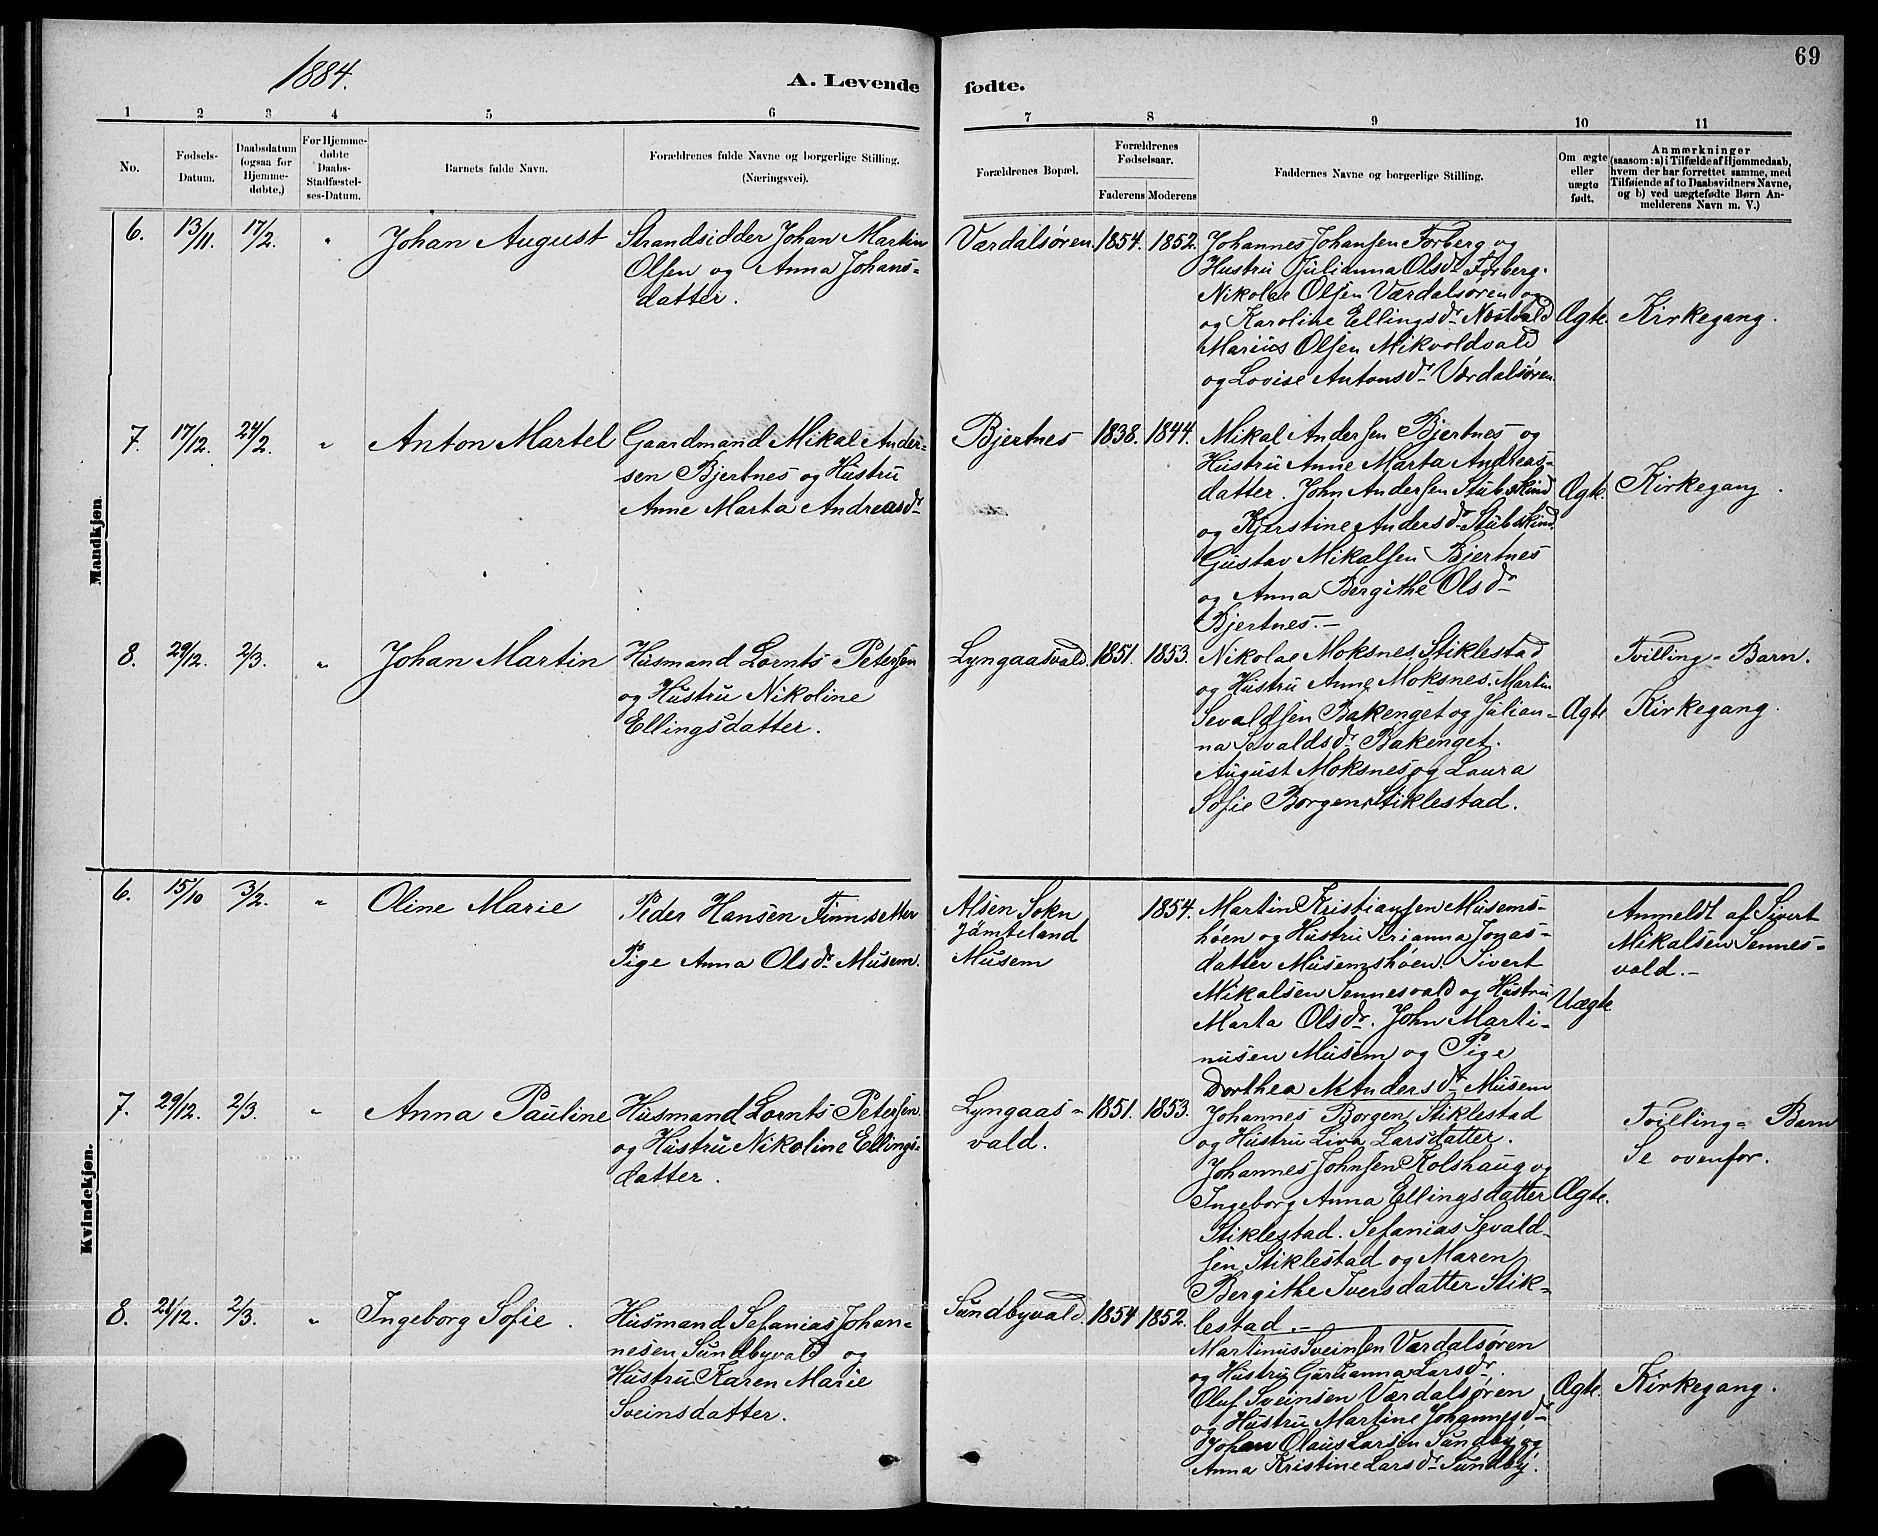 69
1884.
A. Levende fødte.
1 2 3 4 5 6 7 8 9 10 11
No.
Fødsels-
Datum.
Daabsdatum
(ogsaa for
Hjemme-
døbte.)
For Hjemme-
døbte
Daabs-
Stadfæstel-
ses-Datum.
Barnets fulde Navn.
Forældrenes fulde Navne og borgerlige Stilling.
(Næringsvei).
Forældrenes Bopæl.
Forældrenes
Fødselsaar.
Faderens Moderens
Faddernes Navne og borgerlige Stilling.
Om ægte
eller
uægte
født.
Anmærkninger
(saasom: a) i Tilfælde af Hjemmedaab,
hvem der har forrettet samme, med
Tilføiende af to Daabsvidners Navne,
og b) ved uægtefødte Børn An-
melderens Navn m. V.)
Mandkjøn
6. 13/11. 17/2. " Johan August
Strandsidder Johan Martin
Olsen og Anna Johans-
datter.
Værdalsøren. 1854. 1852.
Johannes Johansen Forberg og
Hustru Julianna Olsdr Forberg.
Nikolae Olsen Værdalsøren og
og Karoline Ellingsdr Nestvald
Marius Olsen Mikvoldvald
og Lovise Antonsdr Værdalsøren.
Ægte. Kirkegang.
7. 17/12. 24/2. " Anton Martel
Gaardmand Mikal Ander-
sen Bjertnes og Hustru
Anne Marta Andreasdr
Bjertnes 1838. 1844.
Mikal Andersen Bjertnes og
Hustru Anne Marta Andreas-
datter. John Andersen Stubskind
og Kjerstine Andersdr Stubskind.
Gustav Mikalsen Bjertnes
og Anna Bergithe Olsdr
Bjertnes.-
Ægte. Kirkegang.
8. 29/12. 2/3. " Johan Martin
Husmand Lornts Petersen
og Hustru Nikoline
Ellingsdatter.
Lyngaasvald. 1851. 1853.
Nikolae Moksnes Stiklestad
og Hustru Anne Moksnes. Martin
Sevaldsen Bakenget og Julian-
na Sevaldsdr Bakenget.
August Moksnes og Laura
Sofie Borgen Stiklestad.
Ægte
Tvilling-Barn.
Kirkegang.
Kvindekjøn.
6. 15/10 3/2. " Oline Marie
Peder Hansen Finnsetter
Pige Anna Olsdr Musem.
Alsen Sokn
Jämteland
Musem
1854.
Martin Kristiansen Musems-
høen og Hustru Jonas-
datter Musemshøen. Sivert
Mikalsen Sennesvald og Hustru
Marta Olsdr. John Marti-
nusen Musem og Pige
Dorthea Andersdr Musem
Uægte
Anmeldt af Sivert
Mikalsen Sennes-
vald.-
7. 29/12. 2/3. " Anna Pauline
Husmand Lornts Petersen
og Hustru Nikoline Ellings-
datter.
Lyngaas-
vald.
1851. 1853.
Johannes Borgen Stiklestad
og Hustru Liva Larsdatter.
Johannes Johnsen Kolshaug og
Ingeborg Anna Ellingsdatter
Stiklestad. Sefanias Sevald-
sen Stiklestad og Maren
Bergithe Iversdatter Stik-
lestad.-
Ægte.
Tvilling-Barn
Se ovenfor.
8. 28/12. 2/3. " Ingeborg Sofie.
Husmand Sefanias Johan-
nesen Sundbyvald og
Hustru Karen Marie
Sveinsdatter.
Sundbyvald. 1854 1852.
Martinus Sveinsen Værdalsøren
og Hustru Gurianna Larsdr.
Oluf Sveinsen Værdalsøren
og Hustru Martine Johannesdr
Johan Olaus Larsen Sundby og
Anna Kristine Larsdr Sundby.
Ægte. Kirkegang.